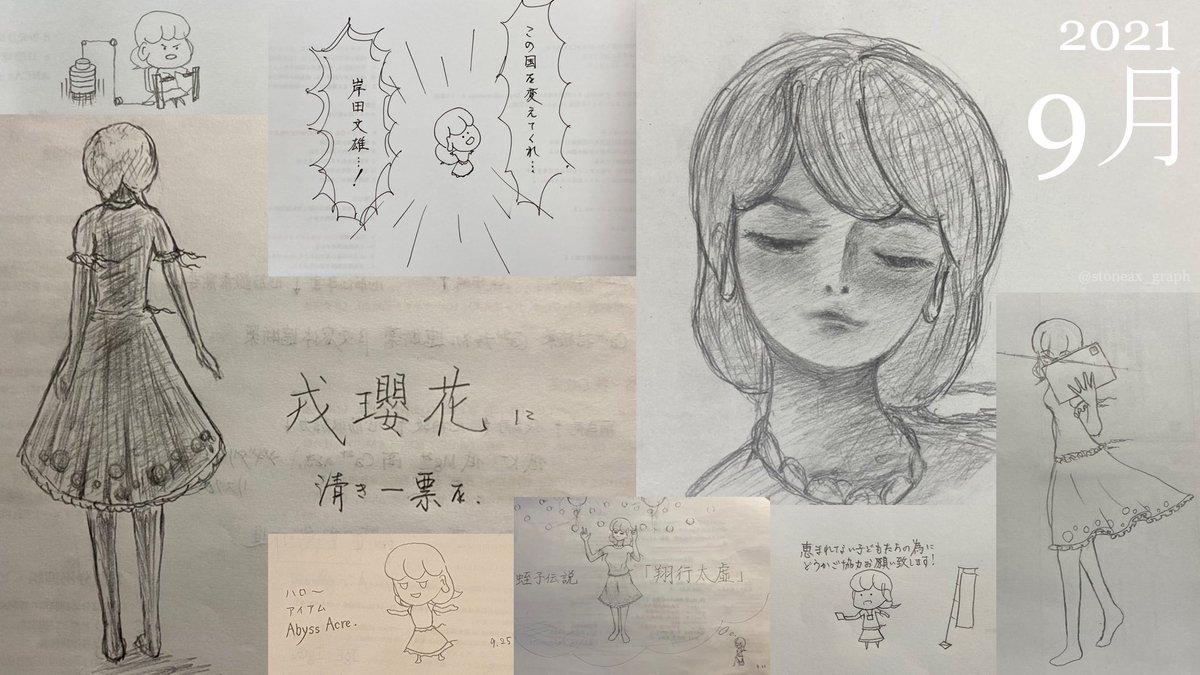 2021
9月
@stoneax_graph
この国を変えてくれ…
岸田文雄…!
戎瓔花に
清き一票を.
ハロー
アイアム
Abyss Acre.
9.25
蛭子伝説
「翔行太虚」
恵まれてない子どもたちの為に
どうかご協力お願い致します!